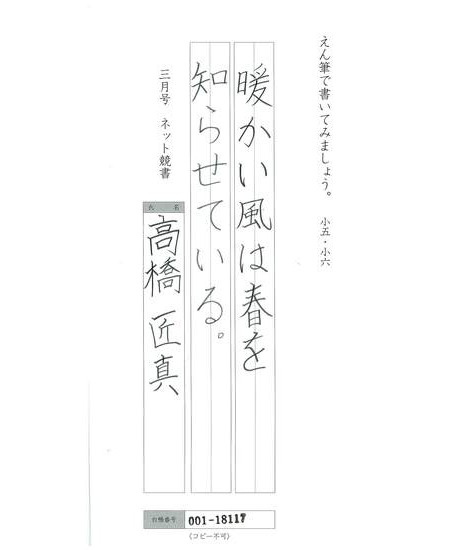 えん筆で書いてみましょう。 小五・小六
暖かい風は春を
知らせている。
三月号 ネット競書
氏名
高橋匠真
台帳番号 001-18117
(コピー不可)